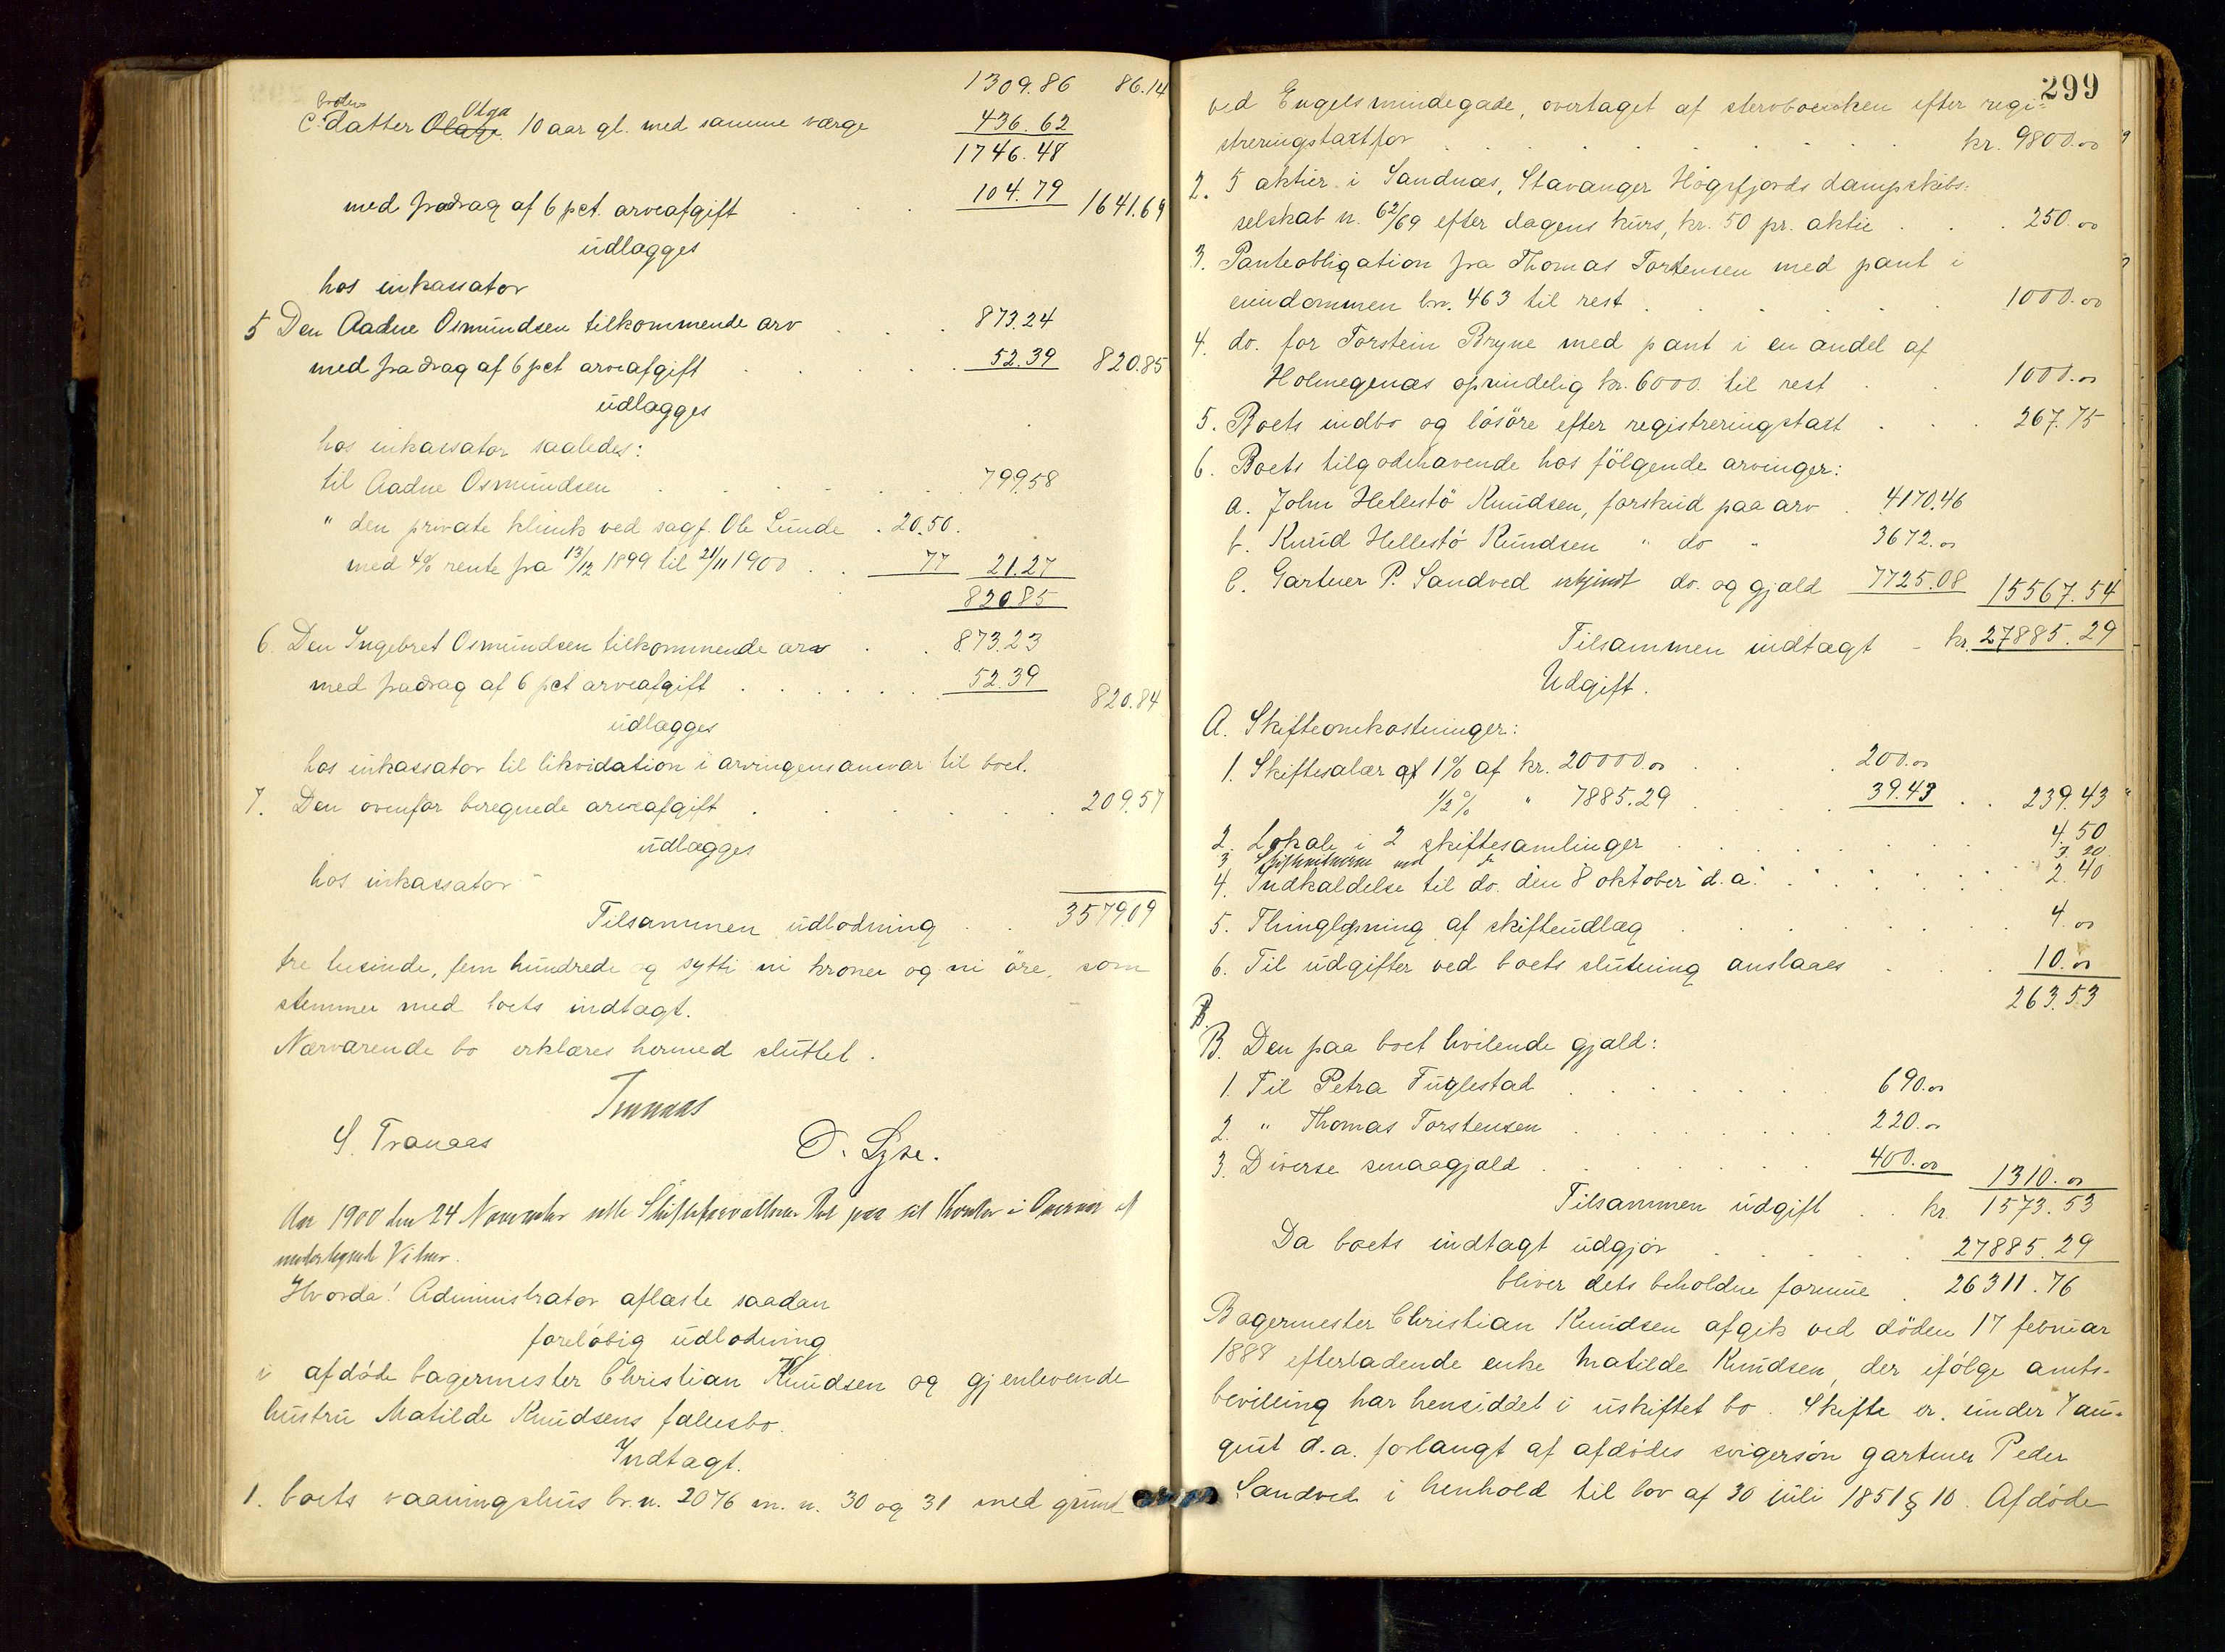 1309.86 86.14
broders
c. datter Olage Olga 10 aar gl. med samme værge 436.62
1746.48
med fradrag af 6 pct. arveafgift . . . 104.79 1641.69
udlægges
hos inkassator
5 Den Aadne Osmundsen tilkommende arv . . . 873.24
med fradrag af 6 pct arveafgift . . . 52.39 820.85
udlægges
hos inkassator saaledes:
til Aadne Osmundsen . . . 799.58
" den private klinik ved sagf. Ole Lunde . 20.50.
med 4% rente fra 13/12 1899 til 21/11 1900 . . 77 21.27
820.85
6. Den Ingebret Osmundsen tilkommende arv . . 873.23
med fradrag af 6 pct arveafgift . . . 52.39
820.84
udlægges
hos inkassator til likvidation i arvingens ansvar til boet.
7. Den ovenfor beregnede arveafgift . . . 209.57
udlægges
hos inkassator
Tilsammen udlodning . . 3579.09
tre tusinde, fem hundrede og sytti ni kroner og ni öre, som
stemmer med boets indtægt.
Nærværende bo erklæres hermed sluttet.
S. Tranaas O. Lyse.
Aar 1900 den 24 November Skifteforvalteren Ret paa sit Kontor i Overvær af
undertegnede Vidner.
Hvorda! Administrator aflæste saadan
foreløbig udlodning
i afdøde bagermester Christian Knudsen og gjenlevende
hustru Matilde Knudsens fællesbo.
Indtægt.
1. boets vaaningshus br. n. 2076 m. n. 30 og 31 med grund
299
ved Engelsmindegade, overtaget af stervboenken efter regi-
streringstaxt for . . . kr. 9800.00
2. 5 aktier i Sandnæs, Stavanger Högsfjords dampskibs-
selskab n. 62/69 efter dagens kurs, kr. 50 pr. aktie . . . 250.00
3. Panteobligation fra Thomas Torstensen med pant i
eiendommen br. 463 til rest . . . 1000.00
4. do. for Torstein Bryne med pant i en andel af
Holmegenæs oprindelig kr. 6000 til rest . . 1000.00
5. Boets indbo og lösöre efter registreringstaxt . . . 267.75
6. Boets tilgodehavende hos fölgende arvinger:
a. John Hellestö Knudsen, forskud paa arv . 4170.46
b. Knud Hellestö Knudsen " do " 3672.00
c. Gartner P. Sandved do. og gjæld 7725.08 15567.54
Tilsammen indtægt - kr. 27885.29
Udgift.
A. Skifteomkostninger:
1. Skiftesalær af 1% af kr. 20000.00 . . . 200.00
1/2% " 7885.29 . . . 39.43 . . 239.43
2. Lokale i 2 skiftesamlinger . . . 4.50
3 3.20
4. Indkaldelse til do. den 8 oktober d.a. . . . 2.40
5. Thinglysning af skifteudlæg . . . 4.00
6. Til udgifter ved boets slutning anslaaes . . . 10.00
263.53
B.
B. Den paa boet hvilende gjæld:
1. Til Petra Fuglestad . . . 690.00
2. " Thomas Torstensen . . . 220.00
3. Diverse smaagjæld . . . 400.00 1310.00
Tilsammen udgift . . kr. 1573.53
Da boets indtægt udgjør . . . 27885.29
bliver dets beholdne formue . 26311.76
Bagermester Christian Knudsen afgik ved døden 17 februar
1888 efterladende enke Matilde Knudsen, der ifølge amts-
bevilling har hensiddet i uskiftet bo. Skifte er under 7 au-
gust d.a. forlangt af afdødes svigersøn gartner Peder
Sandved i henhold til lov af 30 juli 1851 § 10. Afdøde